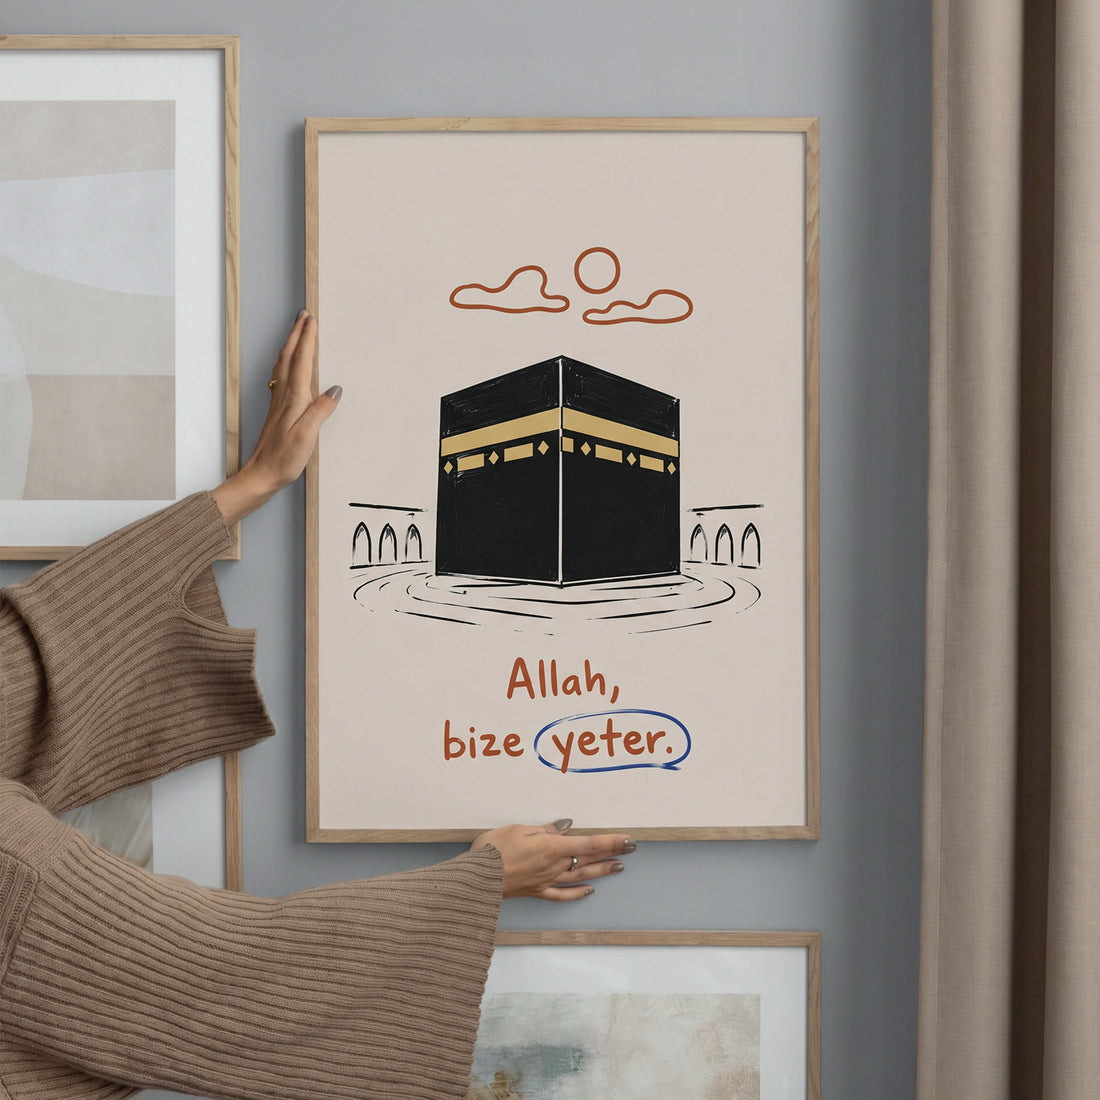 Allah,
bize yeter.